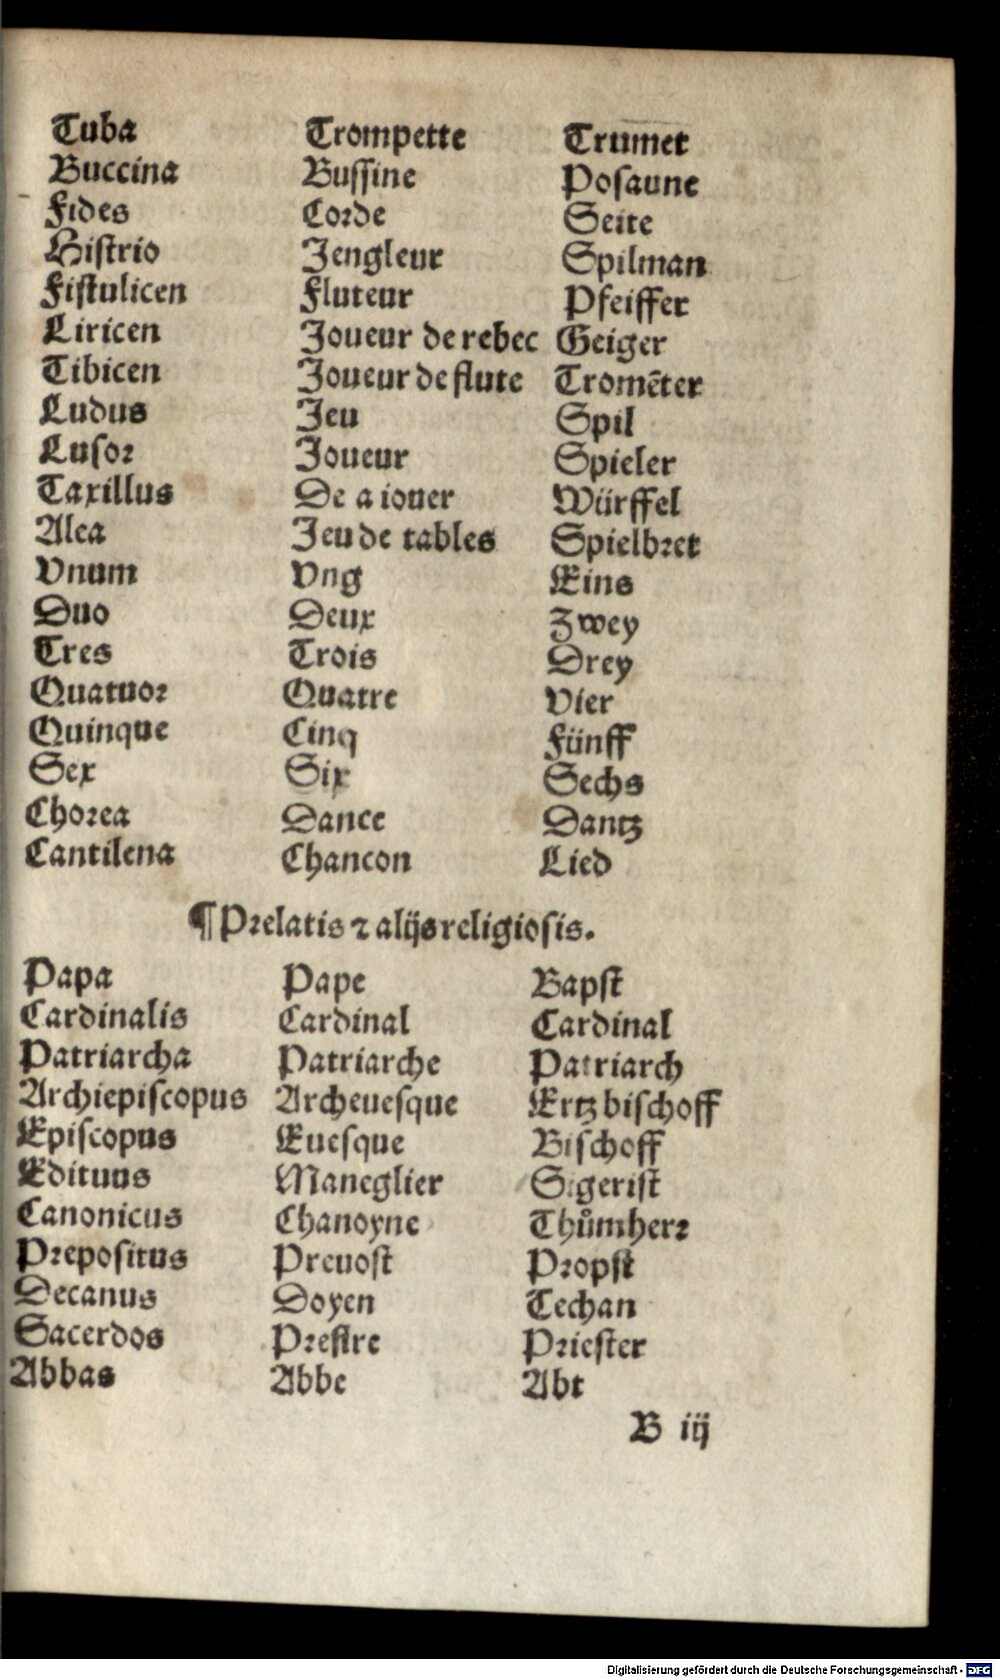 Tuba Trompette Trumet
Buccina Bussine Posaune
Fides Corde Seite
Histrio Jengleur Spilman
Fistulicen Fluteur Pfeiffer
Liricen Joueur de rebec Geiger
Tibicen Joueur de flute Tromēter
Ludus Jeu Spil
Lusor Joueur Spieler
Taxillus De a iouer Würffel
Alea Jeu de tables Spielbret
Vnum Vng Eins
Duo Deux Zwey
Tres Trois Drey
Quatuor Quatre Vier
Quinque Cinq Fünff
Sex Six Sechs
Chorea Dance Dantz
Cantilena Chancon Lied
¶ Prelatis ⁊ alijs religiosis.
Papa Pape Bapst
Cardinalis Cardinal Cardinal
Patriarcha Patriarche Patriarch
Archiepiscopus Archeuesque Ertzbischoff
Episcopus Euesque Bischoff
Edituus Maneglier Sigerist
Canonicus Chanoyne Thůmherr
Prepositus Preuost Propst
Decanus Doyen Techan
Sacerdos Prestre Priester
Abbas Abbe Abt
B iij
Digitalisierung gefördert durch die Deutsche Forschungsgemeinschaft - DFG